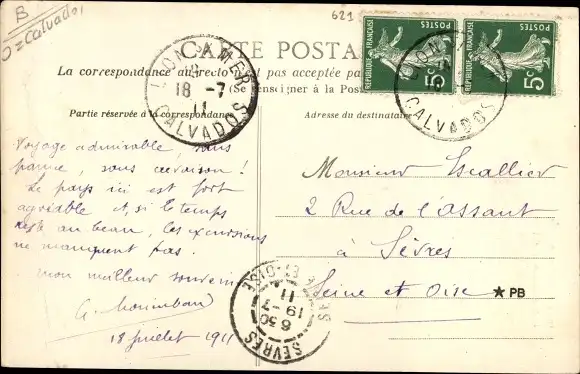 B
J = Calvados
621
CARTE POSTALE
La correspondance au recto n'est pas acceptée pa
(Se renseigner à la Poste
Partie réservée à la correspondance
Adresse du destinataire
RÉPUBLIQUE FRANÇAISE
POSTES
5c
RÉPUBLIQUE FRANÇAISE
POSTES
5c
LION S MER
18 -7
11
CALVADOS
LION S
CALVADOS
Voyage admirable, sans
panne, sans
Le pays ici est fort
agréable et, si le temps
reste au beau, les excursions
ne manquent pas.
mon meilleur souvenir
18 juillet 1911
Monsieur Escallier
2 Rue de l'Assaut
à Sèvres
Seine et Oise
★ PB
SEVRES
6 30
19 -7
11
SEINE ET-OISE